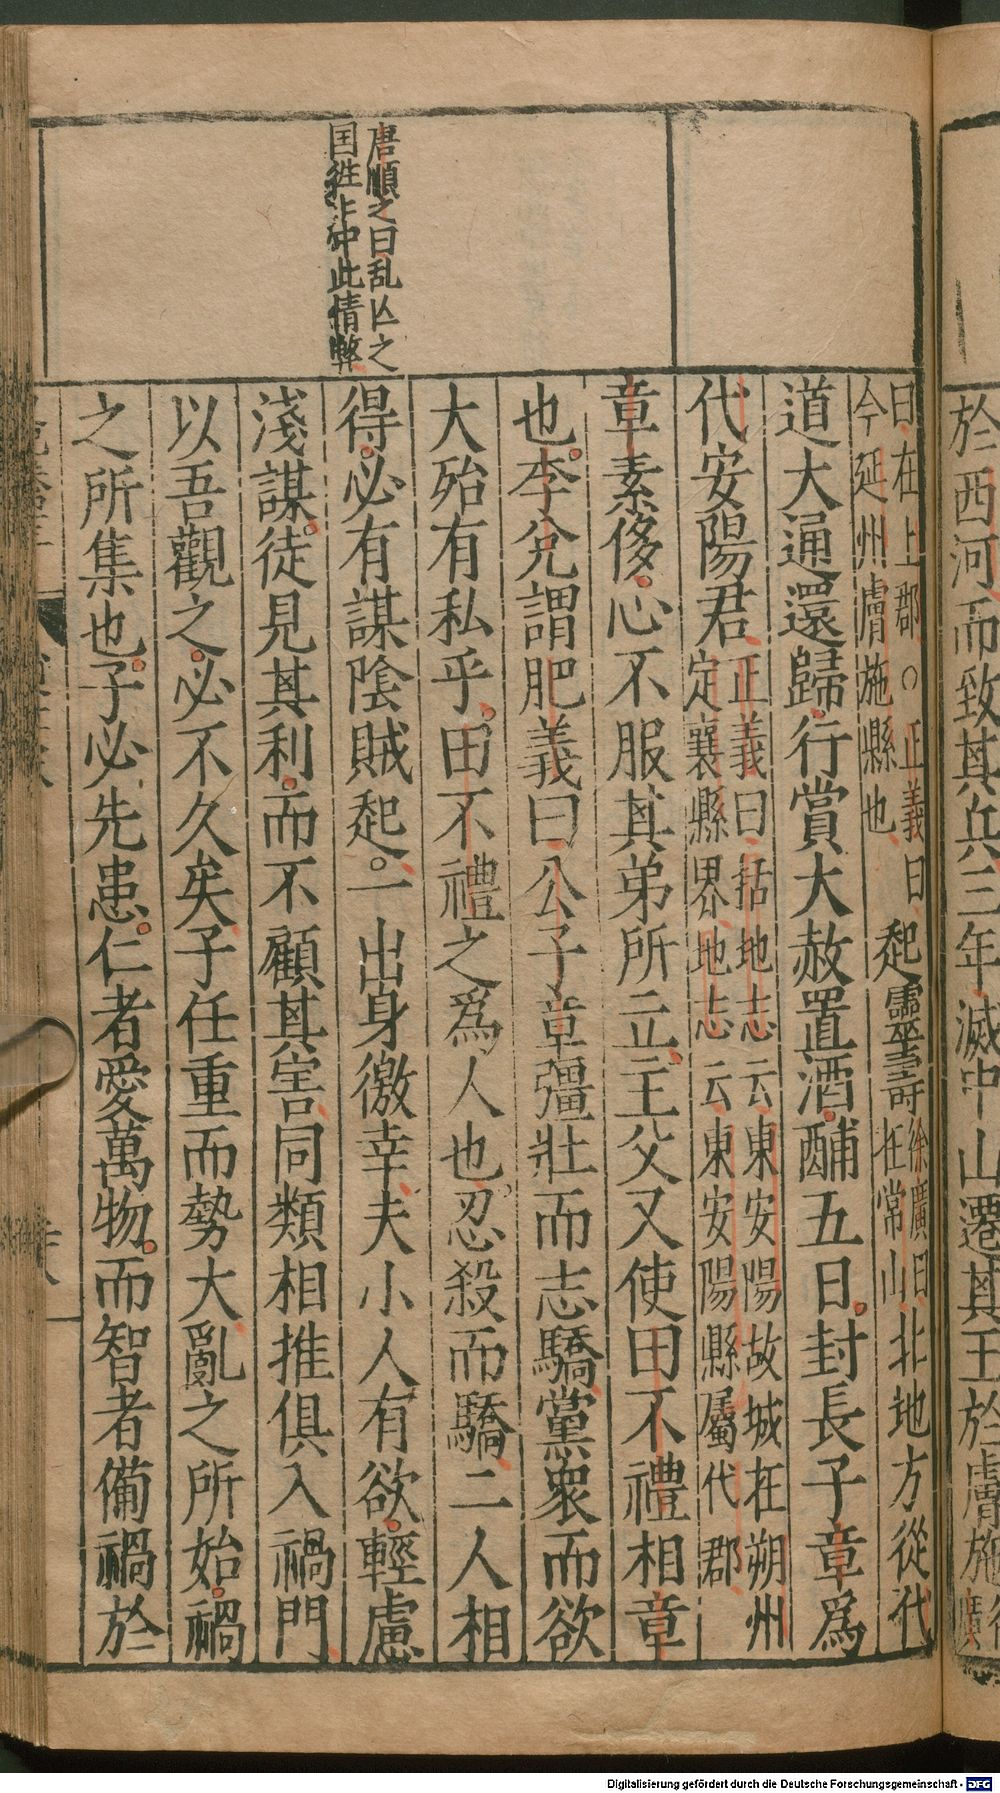 於西河而致其兵三年滅中山遷其王於膚施
唐順之曰乱亡之
国徃
中此情弊
曰在上郡○正義曰
今延州膚施縣也
起靈壽
徐廣曰
在常山
北地方從代
道大通還歸行賞大赦置酒酺五日封長子章爲
代安陽君
正義曰括地志云東安陽故城在朔州
定襄縣界地志云東安陽縣屬代郡
章素侈心不服其弟所立主父又使田不禮相章
也李兊謂肥義曰公子章彊壯而志驕黨衆而欲
大殆有私乎田不禮之爲人也忍殺而驕二人相
得必有謀陰賊起一出身徼幸夫小人有欲輕慮
淺謀徒見其利而不顧其害同類相推俱入禍門
以吾觀之必不久矣子任重而勢大亂之所始禍
之所集也子必先患仁者愛萬物而智者備禍於
Digitalisierung gefördert durch die Deutsche Forschungsgemeinschaft - DFG